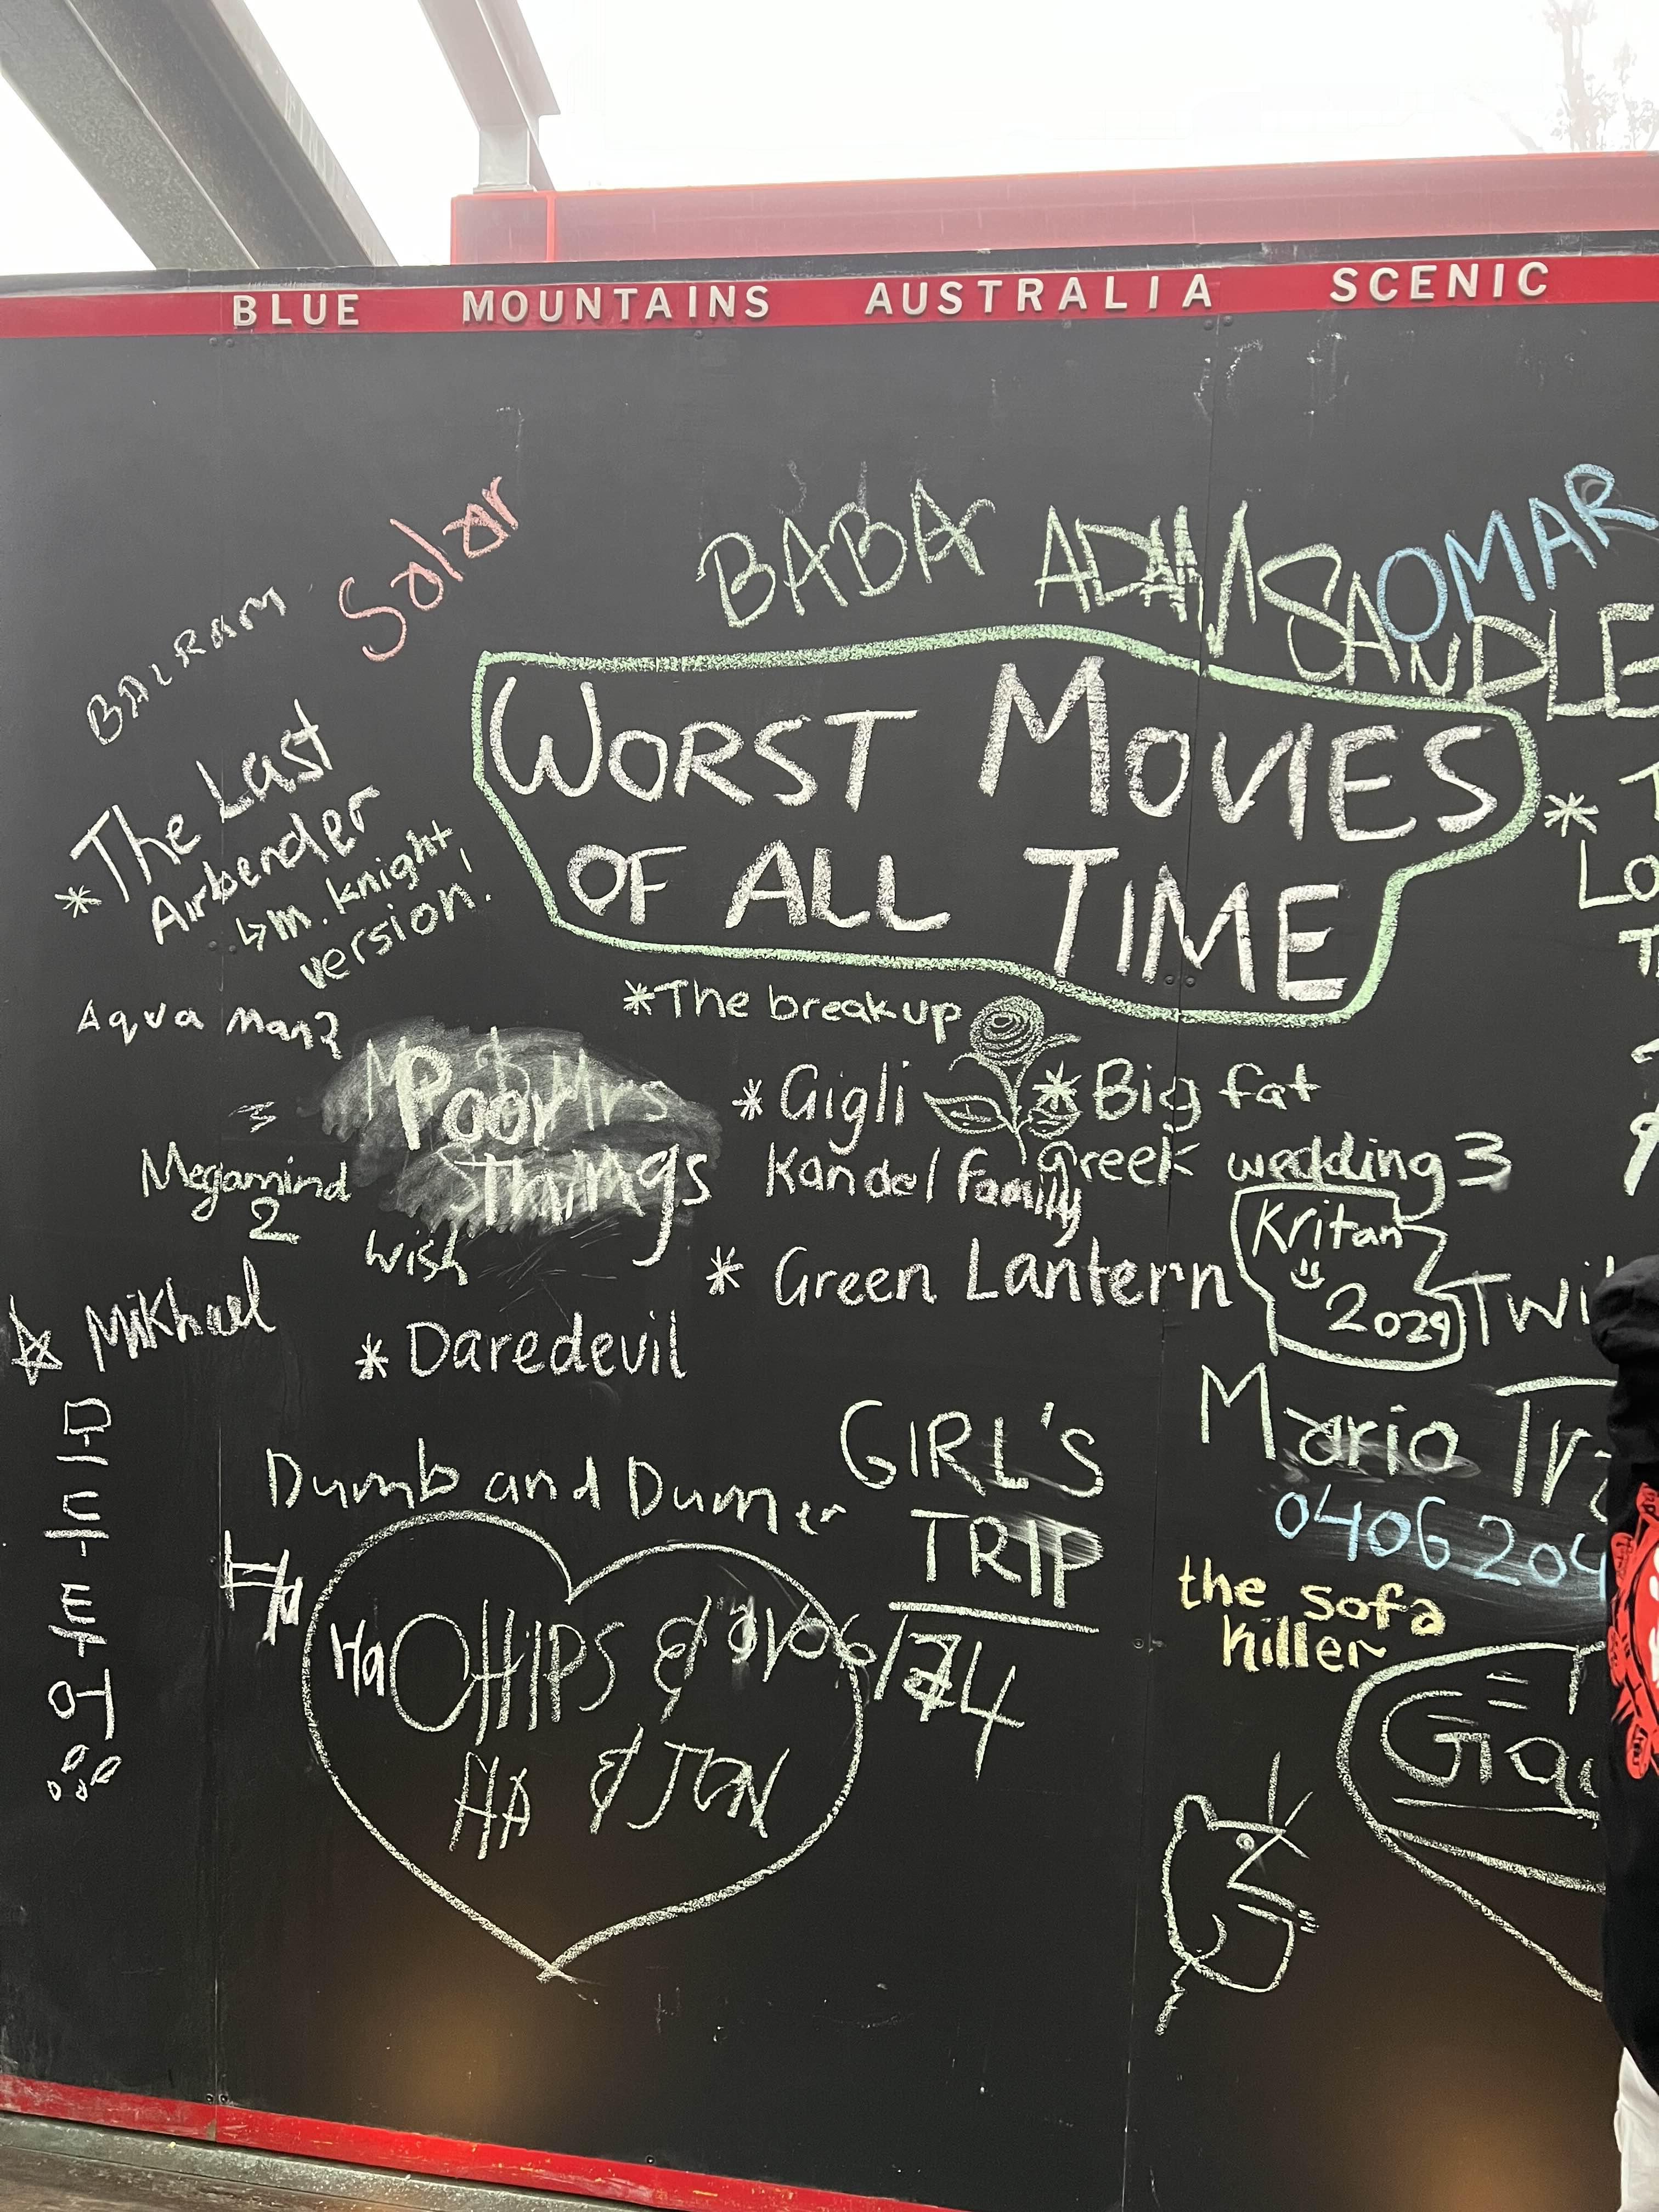 BLUE MOUNTAINS AUSTRALIA SCENIC
Solar
BABA ADAM SANDLE
OMAR
BALRAM
WORST MOVIES
OF ALL TIME
* The Last
Airbender
↳ m. knight
version.
*
LO
Aqua man2
*The breakup
Mr & Mrs
Smith
Poor
Things
* Gigli
* Big fat
Greek wedding 3
Kandel family
Megamind
2
wish
* Green Lantern
Kritan
2029
Twi
☆ Mikhael
* Daredevil
GIRL'S
TRIP
Mario Tr
Dumb and Dumer
0406 204
the sofa
killer
Ha
Ha CHIPS &
HA & JON